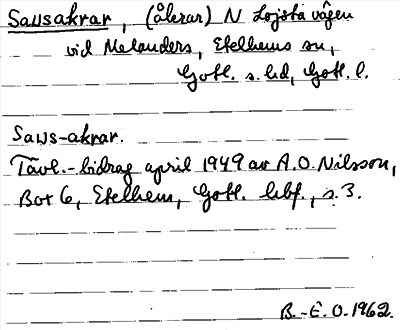 Sausakrar, (åkrar) N Lojsta vägen
vid Melanders, Etelhems sn,
Gotl. s. hd, Gotl. l.
Saus-akrar.
Tävl.-bidrag april 1949 av A.O. Nilsson,
Box 6, Etelhem, Gotl. hbf., s. 3.
B.-E. O. 1962.